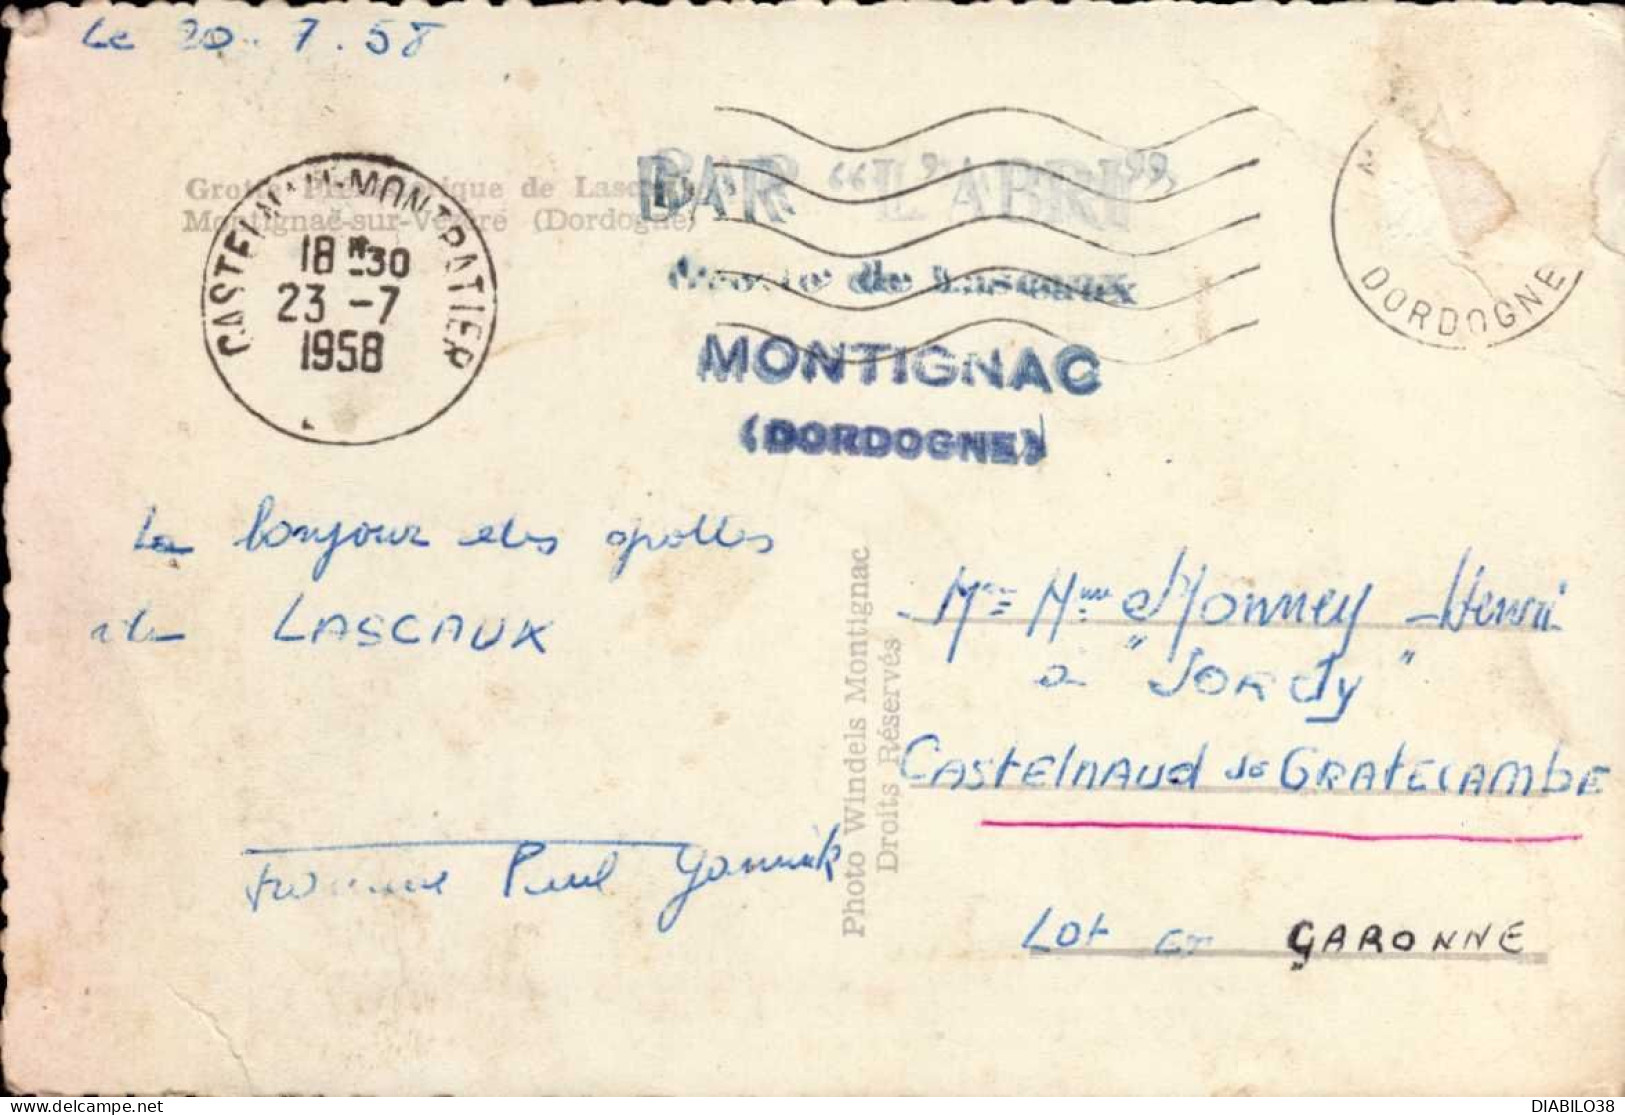 Le 20 . 7 . 58
Grotte Préhistorique de Lascaux
Montignac-sur-Vézère (Dordogne)
CASTELNAU-MONTRATIER
18 H 30
23 - 7
1958
BAR “L’ABRI”
Grotte de Lascaux
MONTIGNAC
(DORDOGNE)
M
DORDOGNE
Le bonjour des grottes
de LASCAUX
Paul Yannick
Photo Windels Montignac
Droits Réservés
Mr Mme Monney Henri
à "JORdy"
CAStElNAUd de GRAtECAMbE
LOt ET GARONNE
DIABILO38